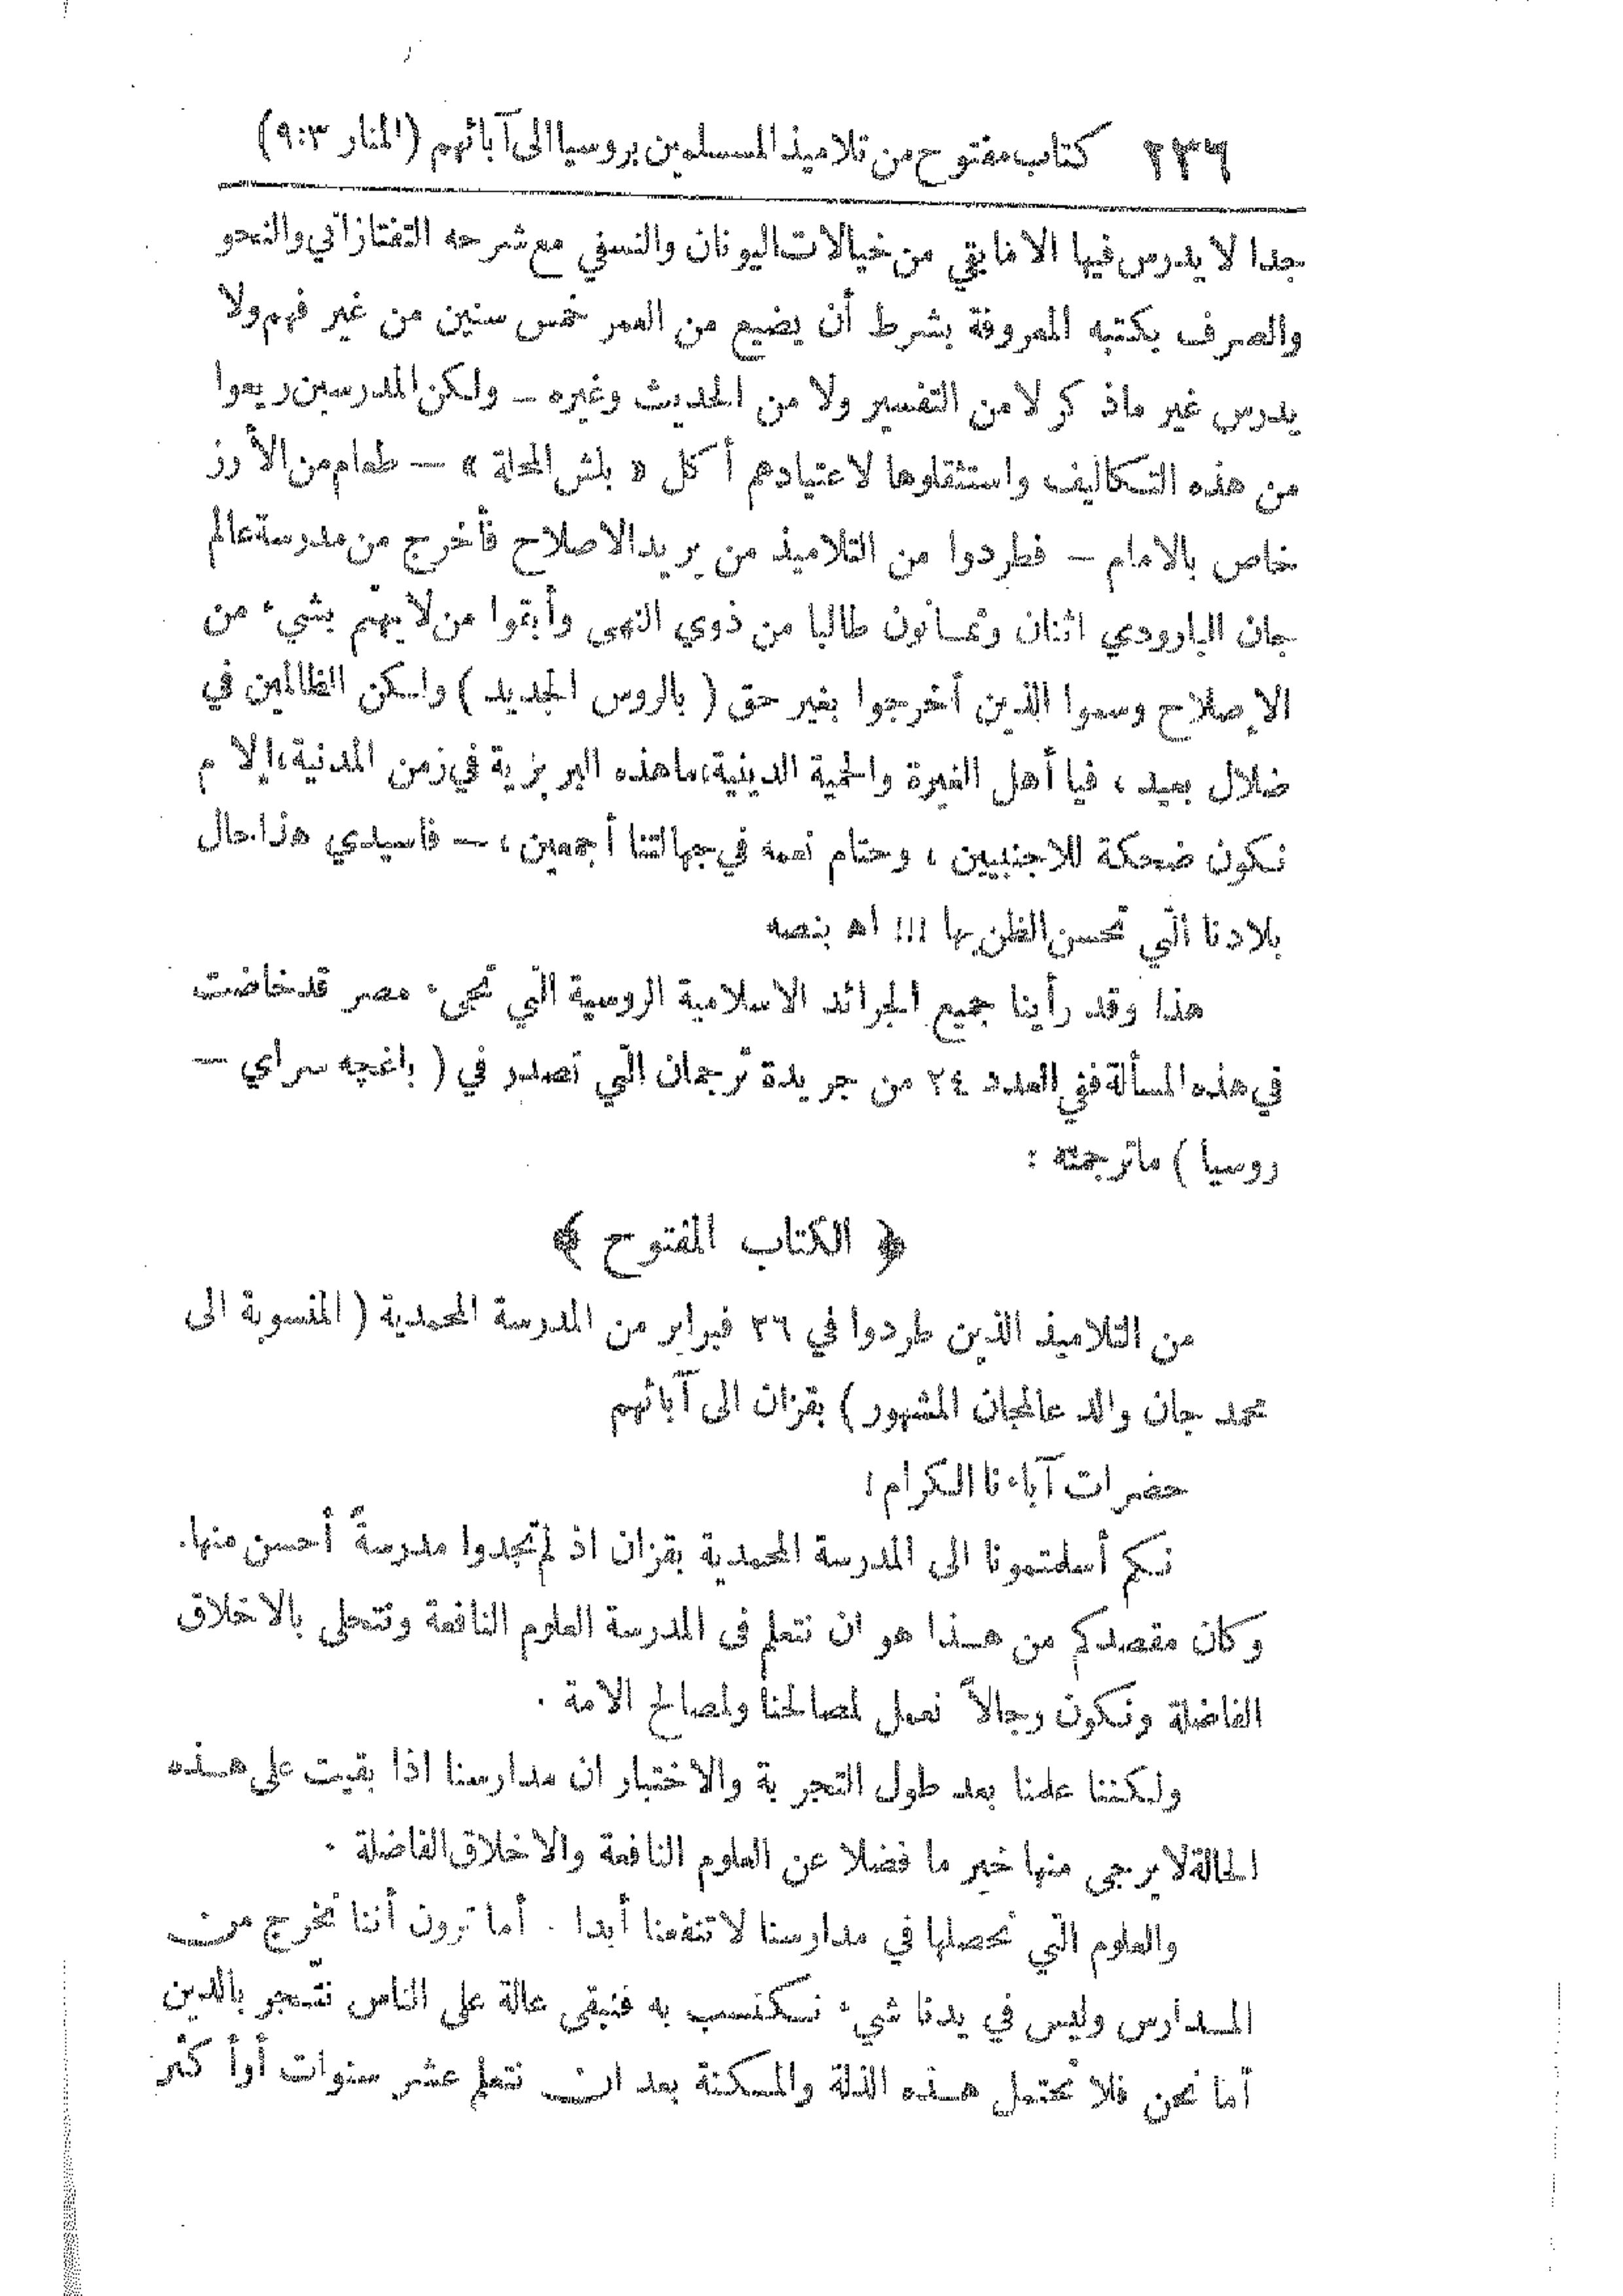 ٢٣٦ كتاب مفتوح من تلاميذ المسلمين بروسيا الى آبائهم (المنار ٩:٣)
جدا لا يدرس فيها الا مابقي من خيالات اليونان والنسفي مع شرحه التفتازاني والنحو
والصرف بكتبه المعروفة بشرط أن يضيع من العمر خمس سنين من غير فهم ولا
يدرس غير ماذكر لا من التفسير ولا من الحديث وغيره – ولكن المدرسين ريعوا
من هذه التكاليف واستثقلوها لاعتيادهم أكل « بلش المحلة » – طعام من الأرز
خاص بالامام – فطردوا من التلاميذ من يريد الاصلاح فأخرج من مدرسة عالم
جان البارودي اثنان وثمانون طالبا من ذوي النهى وأبقوا من لا يهتم بشيء من
الإصلاح وسموا الذين أخرجوا بغير حق ( بالروس الجديد ) ولكن الظالمين في
ضلال بعيد ، فيا أهل الغيرة والحمية الدينية، ماهذه البربرية في زمن المدنية، إلام
نكون ضحكة للاجنبيين ، وحتام نعمه في جهالتنا أجمعين ، – فاسيدي هذا حال
بلادنا التي تحسن الظن بها !!! اه بنصه
هذا وقد رأينا جميع الجرائد الاسلامية الروسية التي تجيء مصر قد خاضت
في هذه المسألة ففي العدد ٢٤ من جريدة ترجمان التي تصدر في ( باغچه سراي –
روسيا ) ماترجمته :
﴿ الكتاب المفتوح ﴾
من التلاميذ الذين طردوا في ٢٦ فبراير من المدرسة المحمدية ( المنسوبة الى
محمد جان والد عالمجان المشهور ) بقزان الى آبائهم
حضرات آباءنا الكرام !
نكم أسلمتمونا الى المدرسة المحمدية بقزان اذ لم تجدوا مدرسةً أحسن منها.
وكان مقصدكم من هذا هو ان نتعلم فى المدرسة العلوم النافعة ونتحلى بالاخلاق
الفاضلة ونكون رجالاً نعمل لمصالحنا ولمصالح الامة .
ولكننا علمنا بعد طول التجربة والاختبار ان مدارسنا اذا بقيت على هذه
الحالة لا يرجى منها خير ما فضلا عن العلوم النافعة والاخلاق الفاضلة .
والعلوم التي نحصلها في مدارسنا لا تنفعنا أبدا . أما ترون أننا نخرج من
المدارس وليس في يدنا شيء نكتسب به فنبقى عالة على الناس نتّجر بالدين
أما نحن فلا نحتمل هذه الذلة والمسكنة بعد ان نتعلم عشر سنوات أو أكثر